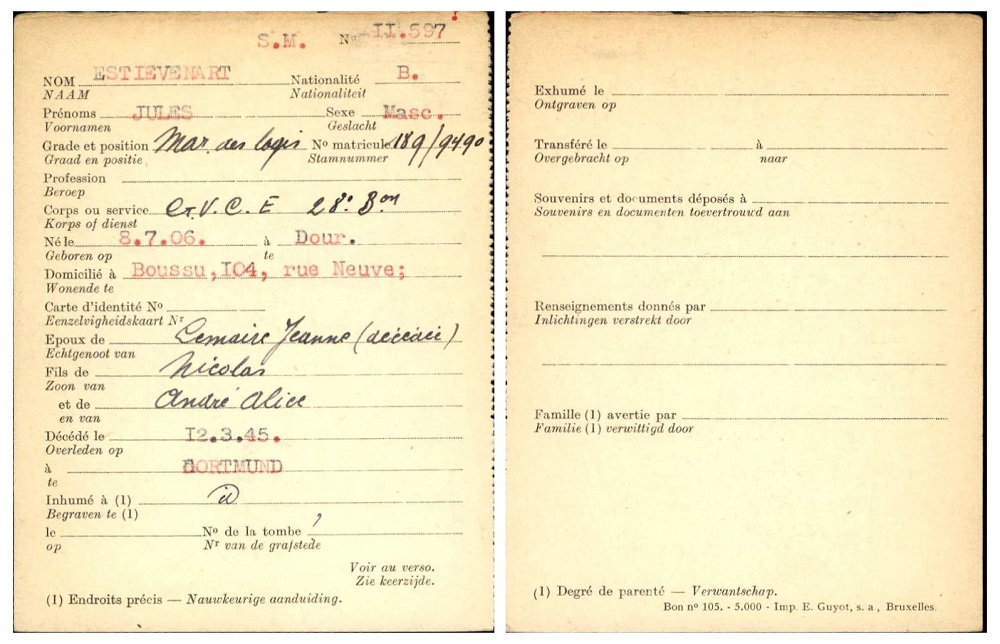 S.M. Nº II.597
NOM ESTIEVENART Nationalité B.
NAAM Nationaliteit
Prénoms JULES Sexe Masc.
Voornamen Geslacht
Grade et position Mar. des logis Nº matricule 189/9490
Graad en positie Stamnummer
Profession
Beroep
Corps ou service Ct.V.C.E 28e Bon
Korps of dienst
Né le 8.7.06. à Dour.
Geboren op te
Domicilié à Boussu,I04, rue Neuve;
Wonende te
Carte d'identité Nº
Eenzelvigheidskaart Nr
Epoux de Lemaire Jeanne (décédée)
Echtgenoot van
Fils de Nicolas
Zoon van
et de André Alice
en van
Décédé le I2.3.45.
Overleden op
à DORTMUND
te
Inhumé à (1) id
Begraven te (1)
le Nº de la tombe
op Nr van de grafstede
Voir au verso.
Zie keerzijde.
(1) Endroits précis — Nauwkeurige aanduiding.
Exhumé le
Ontgraven op
Transféré le à
Overgebracht op naar
Souvenirs et documents déposés à
Souvenirs en documenten toevertrouwd aan
Renseignements donnés par
Inlichtingen verstrekt door
Famille (1) avertie par
Familie (1) verwittigd door
(1) Degré de parenté — Verwantschap.
Bon nº 105. - 5.000 - Imp. E. Guyot, s. a., Bruxelles.